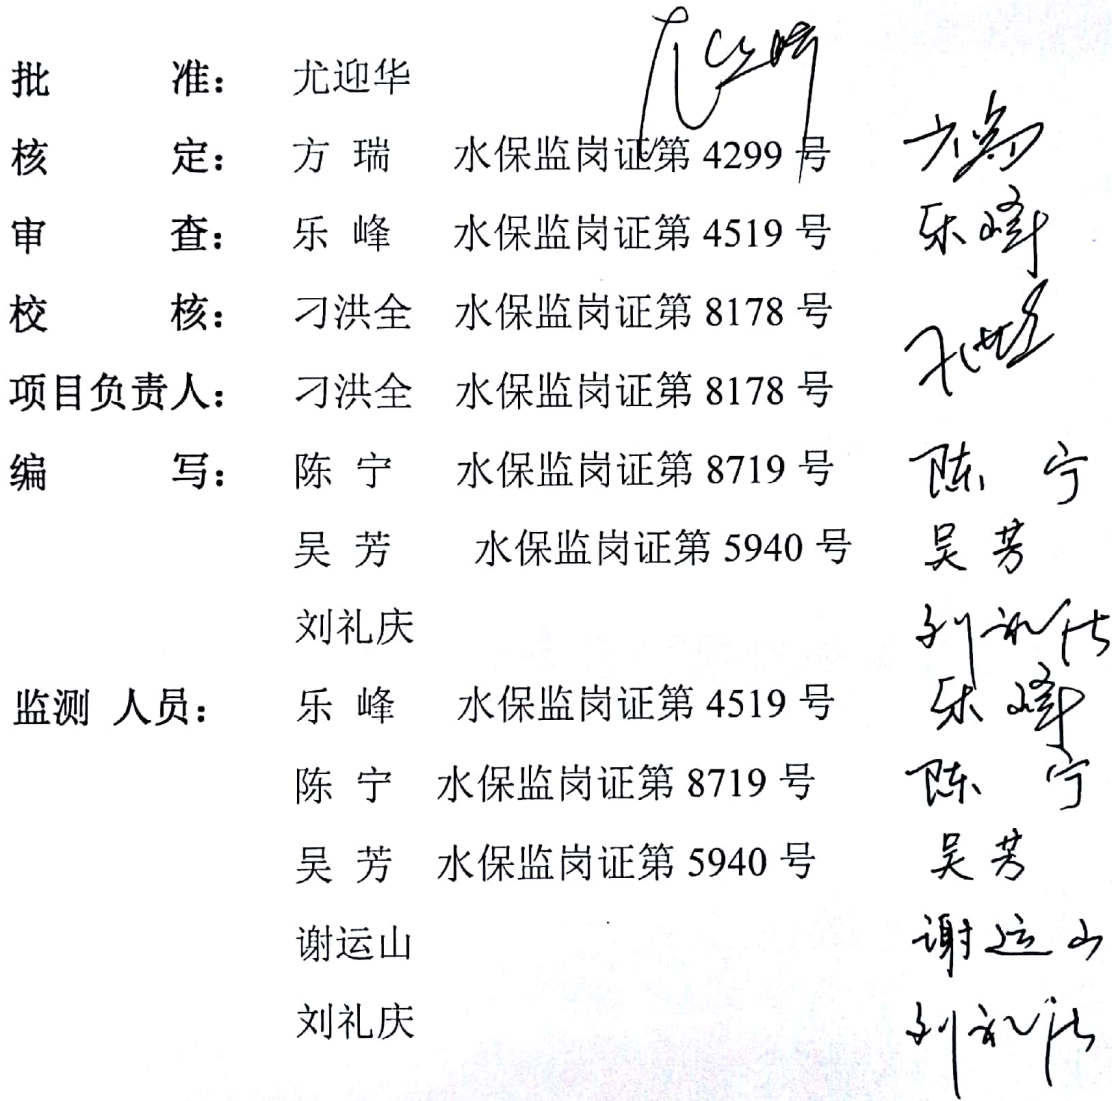 批 准： 尤迎华
核 定： 方 瑞 水保监岗证第 4299 号 方瑞
审 查： 乐 峰 水保监岗证第 4519 号 乐峰
校 核： 刁洪全 水保监岗证第 8178 号
项目负责人： 刁洪全 水保监岗证第 8178 号
编 写： 陈 宁 水保监岗证第 8719 号 陈 宁
吴 芳 水保监岗证第 5940 号 吴 芳
刘礼庆 刘礼庆
监测 人员： 乐 峰 水保监岗证第 4519 号 乐峰
陈 宁 水保监岗证第 8719 号 陈 宁
吴 芳 水保监岗证第 5940 号 吴 芳
谢运山 谢运山
刘礼庆 刘礼庆